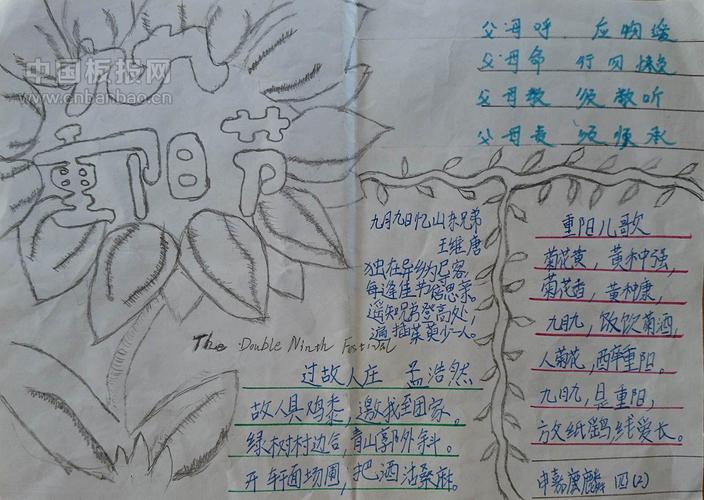 中国板报网
www.cnbanbao.cn
重阳节
The Double Ninth Festival
父母呼 应勿缓
父母命 行勿
父母教 须敬听
父母责 须顺承
九月九日忆山东兄弟
王维 唐
独在异乡为异客，
每逢佳节倍思亲。
遥知兄弟登高处，
遍插茱萸少一人。
重阳儿歌
菊花黄，黄种强，
菊花香，黄种康，
九月九，饮菊酒，
人菊花，醉重阳。
九月九，是重阳，
放纸鹞，线爱长。
申嘉 麟 四(2)
过故人庄 孟浩然
故人具鸡黍，邀我至田家。
绿树村边合，青山郭外斜。
开轩面场圃，把酒话桑麻。